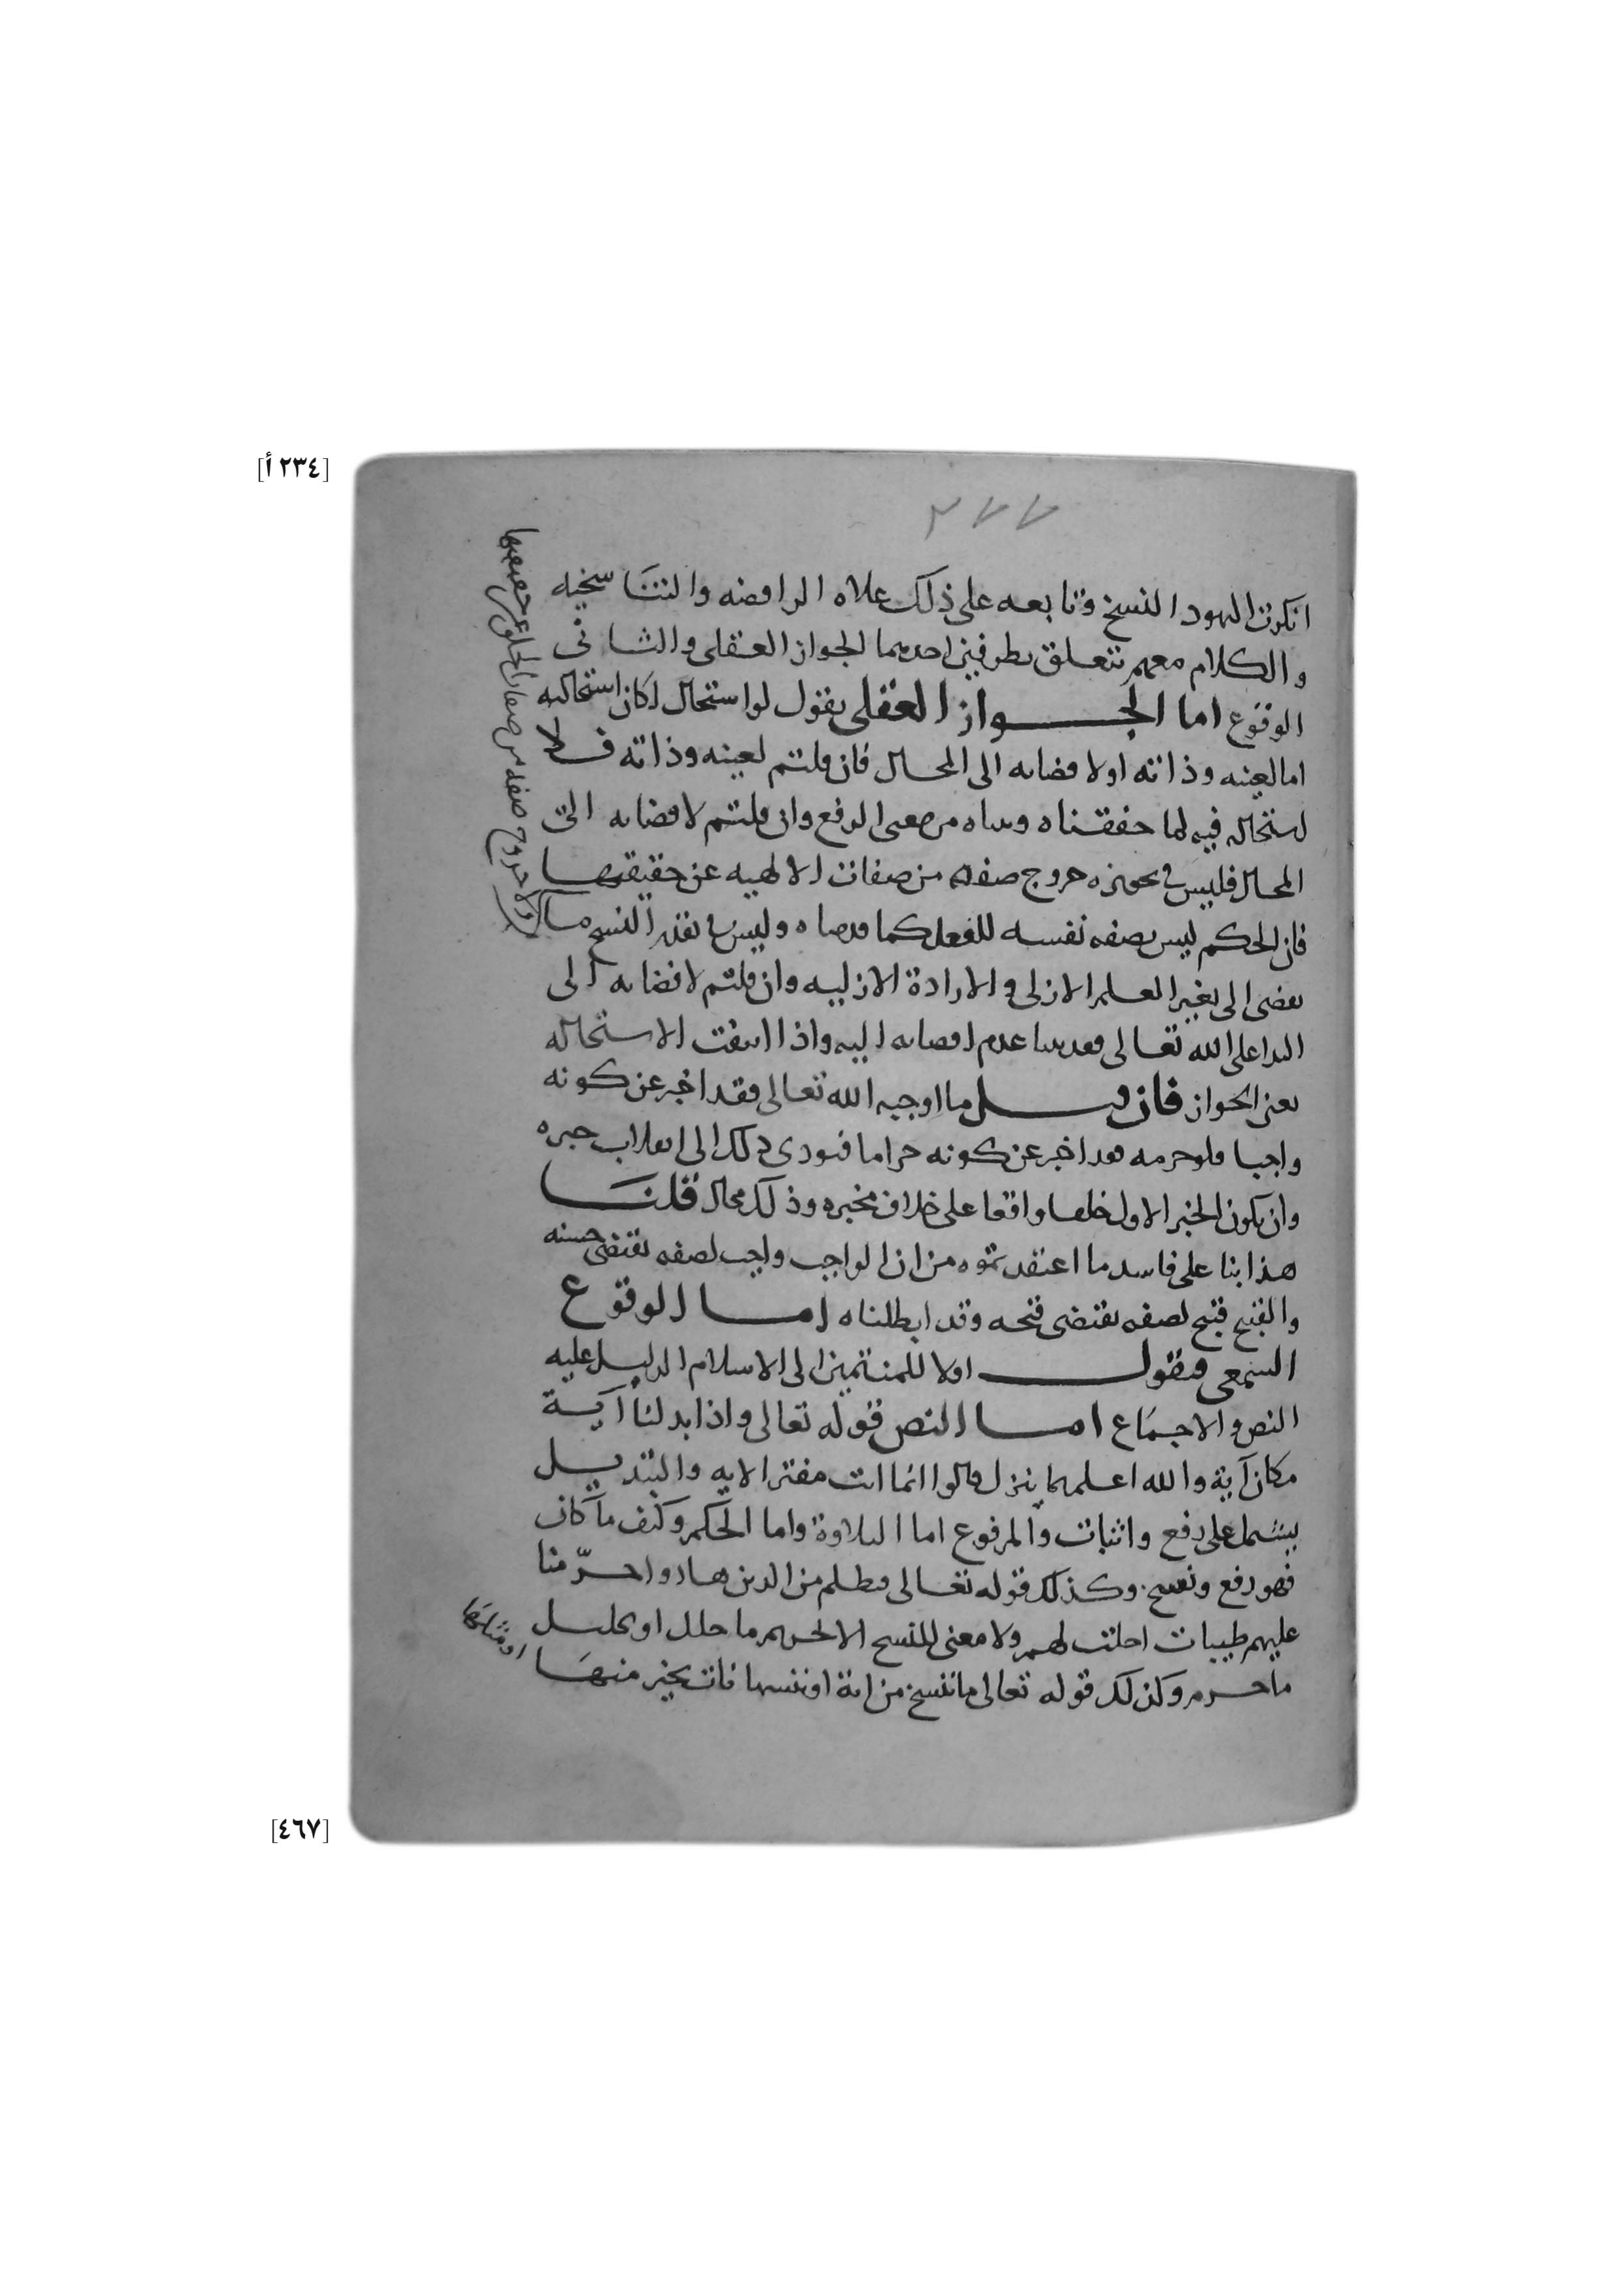 [٢٣٤ أ]
٢٧٧
انكرت اليهود النسخ وتابعه على ذلك غلاه الرافضه والتناسخيه
والكلام معهم تتعلق بطرفين احدهما الجواز العقلى والثانى
الوقوع اما الجواز العقلى نقول لو استحال لكان استحالته
اما لعينه وذاته او لافضايه الى المحال فان قلتم لعينه وذاته فلا
استحاله فيه لما حققناه وبيناه من معنى الرفع وان قلتم لافضايه الى
المحال فليس فى تجويزه خروج صفه من صفات الالهيه عن حقيقتها
ولا خروج صفه من صفات الخلق عن حقيقتها
فان الحكم ليس بصفه نفسيه للفعل كما قدمناه وليس فى تقدير النسخ ما
يفضى الى تغير العلم الازلى والارادة الازليه وان قلتم لافضايه الى
البدا على الله تعالى فقد بينا عدم افضايه اليه واذا انتفت الاستحاله
تعين الجواز فان قيل ما اوجبه الله تعالى فقد اخبر عن كونه
واجبا فلو حرمه فقد اخبر عن كونه حراما فيودى ذلك الى انقلاب خبره
وان يكون الخبر الاول خلفا واقعا على خلاف مخبره وذلك محال قلنا
هذا بنا على فاسد ما اعتقدتموه من ان الواجب واجب لصفه تقتضى حسنه
والقبيح قبيح لصفه تقتضى قبحه وقد ابطلناه اما الوقوع
السمعى فنقول اولا للمنتمين الى الاسلام الدليل عليه
النص والاجماع اما النص فقوله تعالى واذا بدلنا آية
مكان آية والله اعلم بما ينزل قالوا انما انت مفتر الايه والتبديل
يشتمل على رفع واثبات والمرفوع اما التلاوة واما الحكم وكيف ما كان
فهو رفع ونسخ وكذلك قوله تعالى فبظلم من الذين هادوا حرّمنا
عليهم طيبات احلت لهم ولا معنى للنسخ الا تحريم ما حلل او تحليل
ما حرم وكذلك قوله تعالى ما ننسخ من اية او ننسها نات بخير منها
او مثلها
[٤٦٧]